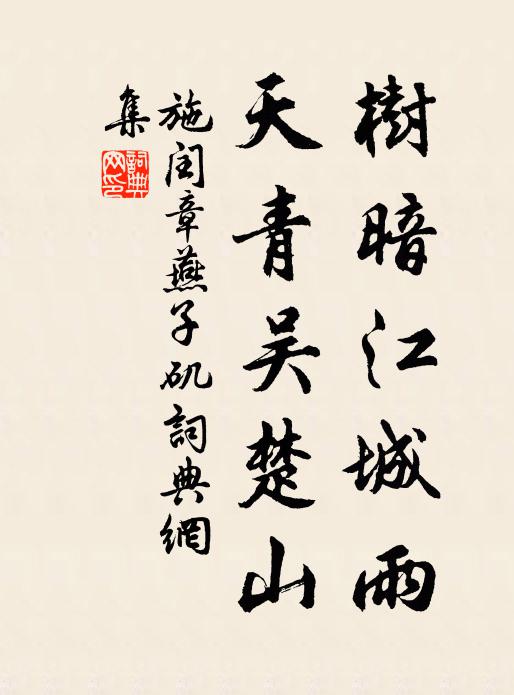 樹暗江城雨
天青吳楚山
施閏章燕子矶詞典網
集
詞典
网印